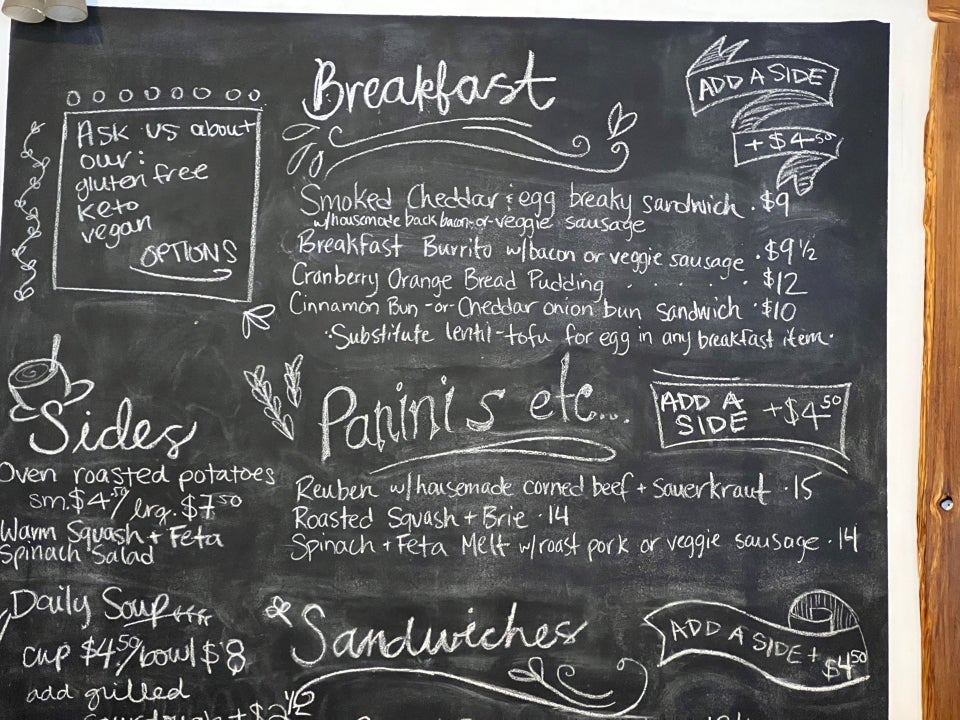 Ask us about
our:
gluten free
keto
vegan
OPTIONS
Breakfast
ADD A SIDE
+ $4.50
Smoked Cheddar & egg breaky sandwich . $9
w/housemade back bacon-or-veggie sausage
Breakfast Burrito w/bacon or veggie sausage . $9 1/2
Cranberry Orange Bread Pudding . . . . . $12
Cinnamon Bun -or- Cheddar onion bun sandwich . $10
·Substitute lentil-tofu for egg in any breakfast item·
Sides
Oven roasted potatoes
sm. $4.50/ lrg. $7.50
Warm Squash + Feta
Spinach Salad
Daily Soup
cup $4.50/bowl $8
add grilled
sourdough + $2 1/2
Panini's etc...
ADD A
SIDE + $4.50
Reuben w/housemade corned beef + Sauerkraut · 15
Roasted Squash + Brie · 14
Spinach + Feta Melt w/roast pork or veggie sausage · 14
Sandwiches
ADD A SIDE + $4.50